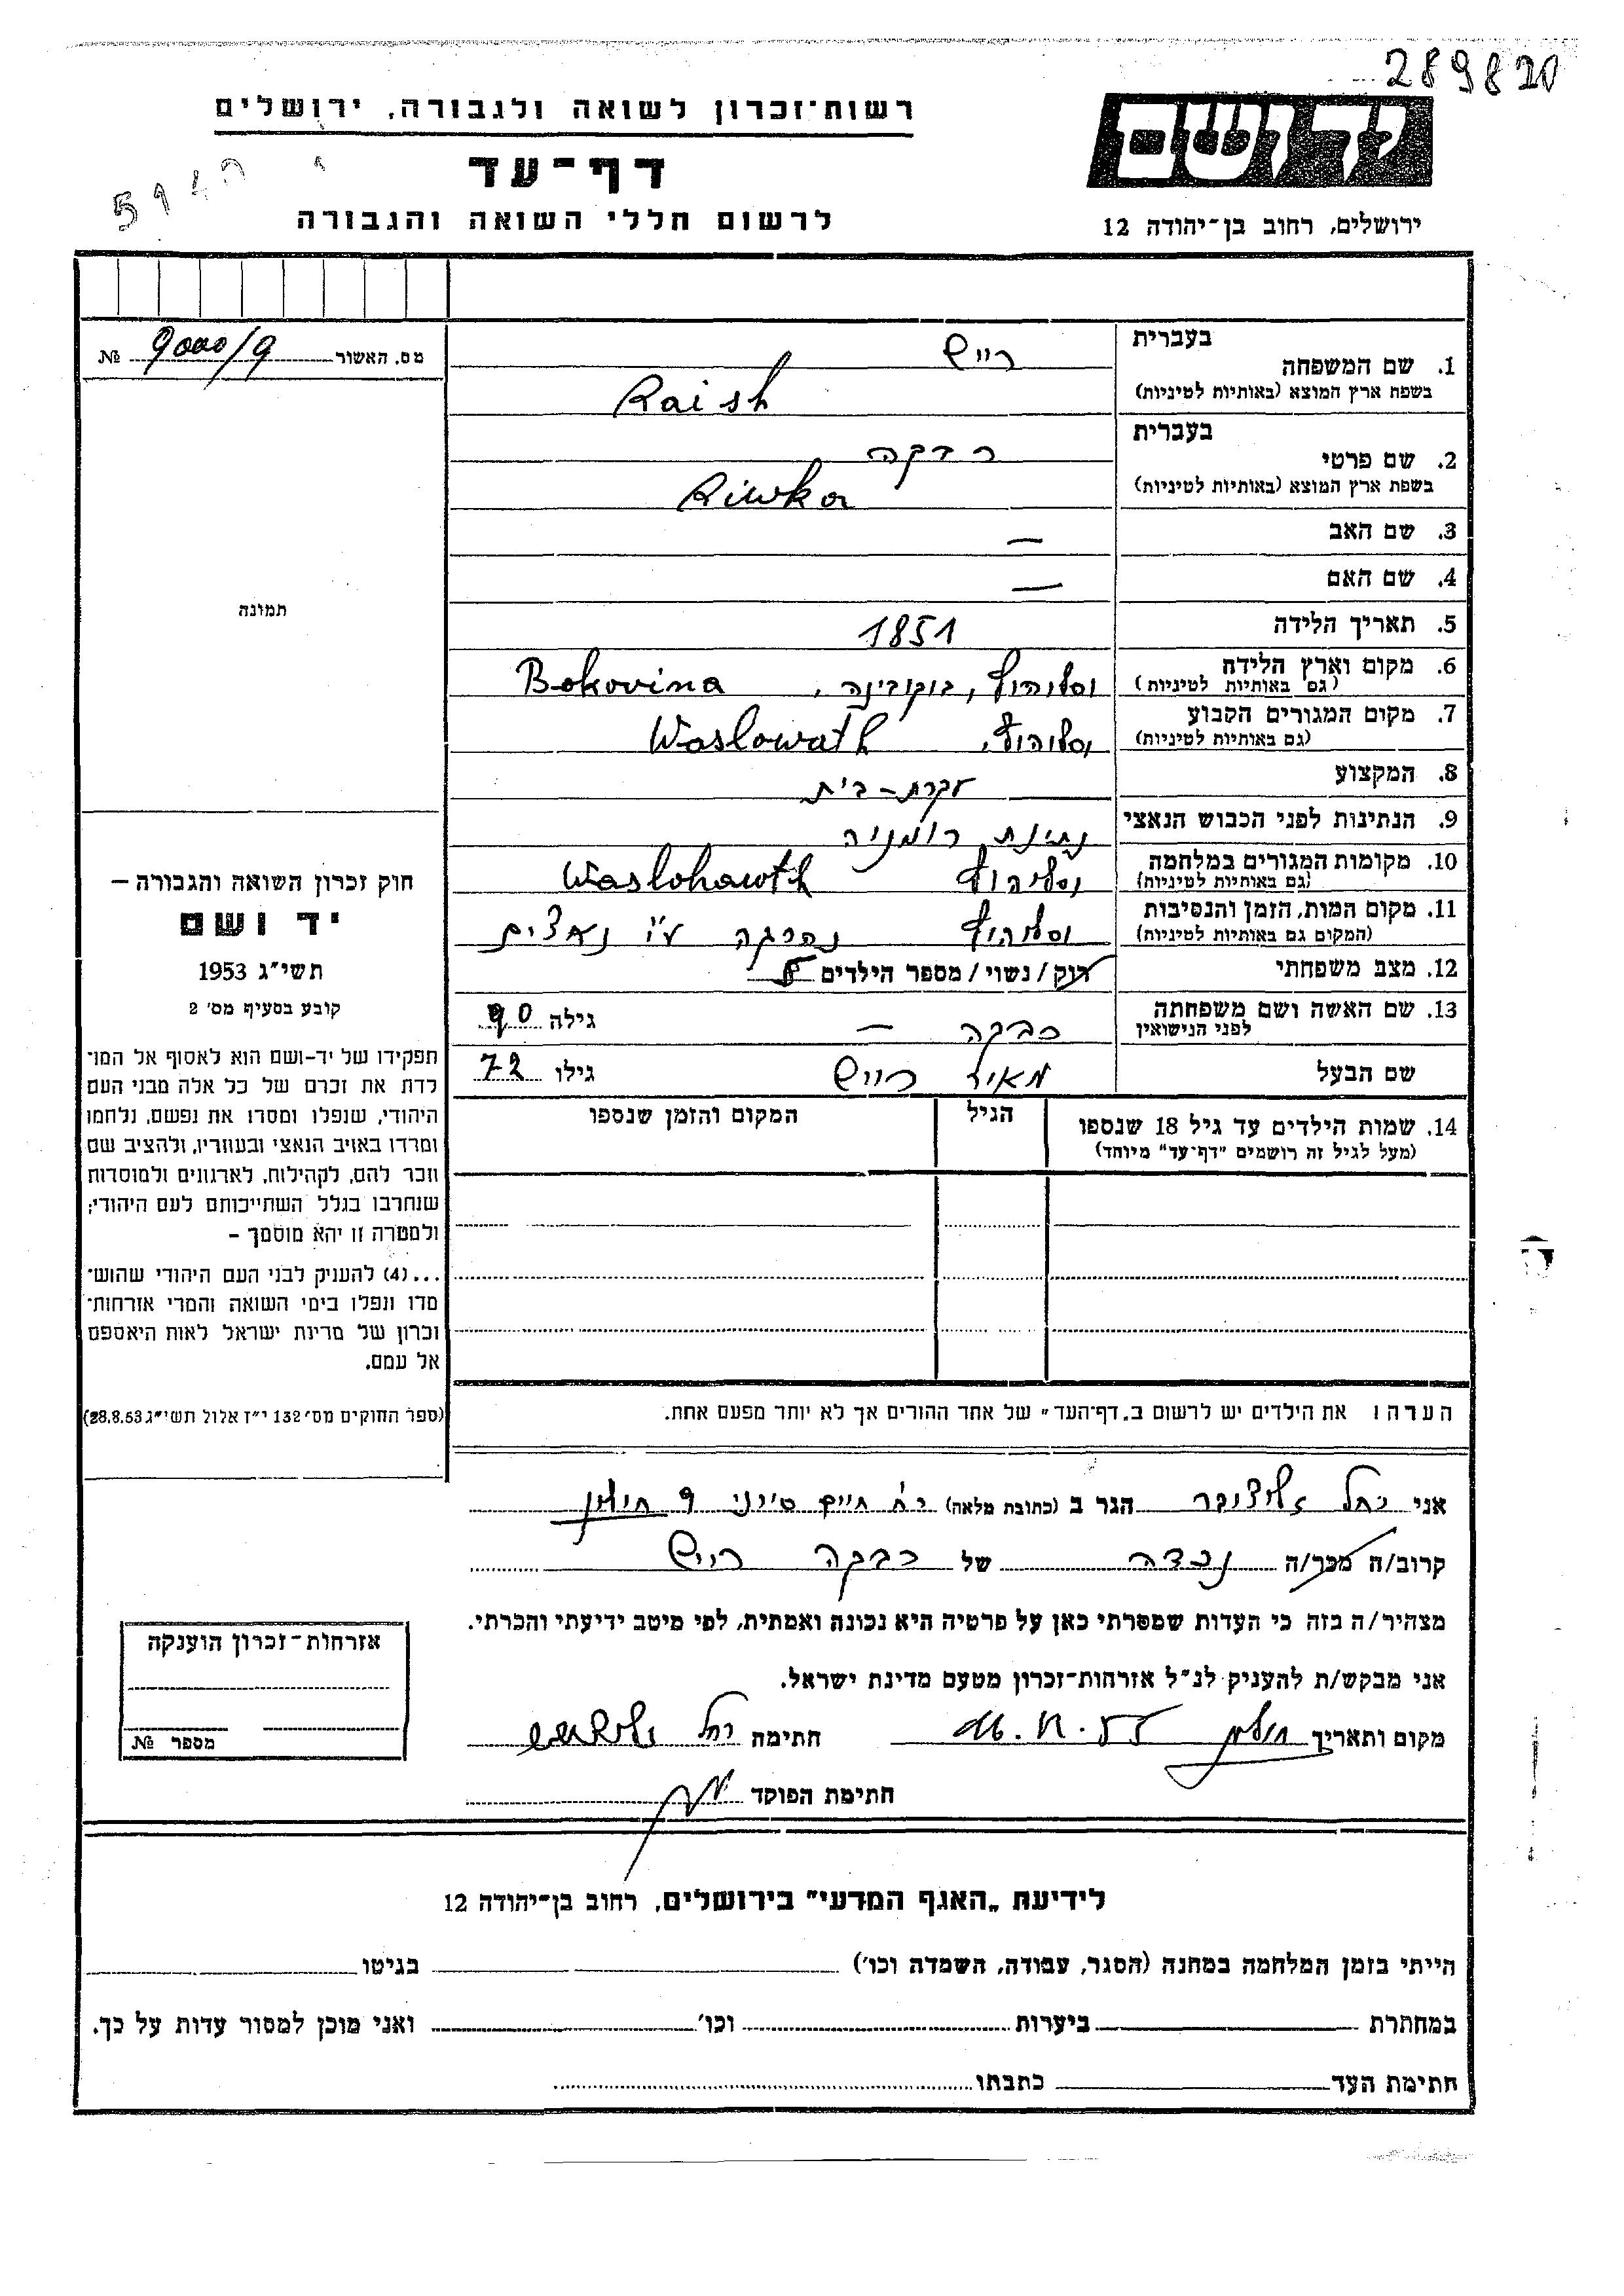 289820
רשות-זכרון לשואה ולגבורה, ירושלים
דף-עד
לרשום חללי השואה והגבורה
יד ושם
ירושלים, רחוב בן-יהודה 12
מס. האשור 9000/9 №
תמונה
חוק זכרון השואה והגבורה –
יד ושם
תשי"ג 1953
קובע בסעיף מס' 2
תפקידו של יד-ושם הוא לאסוף אל המו־
לדת את זכרם של כל אלה מבני העם
היהודי, שנפלו ומסרו את נפשם, נלחמו
ומרדו באויב הנאצי ובעוזריו, ולהציב שם
וזכר להם, לקהילות, לארגונים ולמוסדות
שנחרבו בגלל השתייכותם לעם היהודי;
ולמטרה זו יהא מוסמך –
...(4) להעניק לבני העם היהודי שהוש־
מדו ונפלו בימי השואה והמרי אזרחות־
זכרון של מדינת ישראל לאות היאספם
אל עמם.
(ספר החוקים מס' 132 י"ז אלול תשי"ג 28.8.53)
בעברית
1. שם המשפחה רייש
בשפת ארץ המוצא (באותיות לטיניות) Raish
בעברית
2. שם פרטי רבקה
בשפת ארץ המוצא (באותיות לטיניות) Riwka
3. שם האב —
4. שם האם —
5. תאריך הלידה 1851
6. מקום וארץ הלידה וסלוהוץ, בוקובינה, Bokovina
(גם באותיות לטיניות)
7. מקום המגורים הקבוע וסלוהוץ, Waslowath
(גם באותיות לטיניות)
8. המקצוע עקרת-בית
9. הנתינות לפני הכבוש הנאצי נתינת רומניה
10. מקומות המגורים במלחמה Waslohawth
(גם באותיות לטיניות)
11. מקום המות, הזמן והנסיבות וסלוהוץ נהרגה ע"י נאצים
(המקום גם באותיות לטיניות)
12. מצב משפחתי רוק/נשוי/מספר הילדים
13. שם האשה ושם משפחתה רבקה — גילה 90
לפני הנישואין
שם הבעל מאיר רייש גילו 72
14. שמות הילדים עד גיל 18 שנספו הגיל המקום והזמן שנספו
(מעל לגיל זה רושמים "דף-עד" מיוחד)
הערה: את הילדים יש לרשום ב„דף-העד" של אחד ההורים אך לא יותר מפעם אחת.
אני רחל הגר ב (כתובת מלאה) רח חיים 9 חולון
קרוב/ה מכר/ה נכדה של רבקה רייש
מצהיר/ה בזה כי העדות שמסרתי כאן על פרטיה היא נכונה ואמתית, לפי מיטב ידיעתי והכרתי.
אני מבקש/ת להעניק לנ"ל אזרחות-זכרון מטעם מדינת ישראל.
מקום ותאריך חולון חתימה רחל
חתימת הפוקד
אזרחות-זכרון הוענקה
מספר №
לידיעת „האגף המדעי" בירושלים, רחוב בן-יהודה 12
הייתי בזמן המלחמה במחנה (הסגר, עבודה, השמדה וכו') בגיטו
במחתרת ביערות וכו' ואני מוכן למסור עדות על כך.
חתימת העד כתבתו